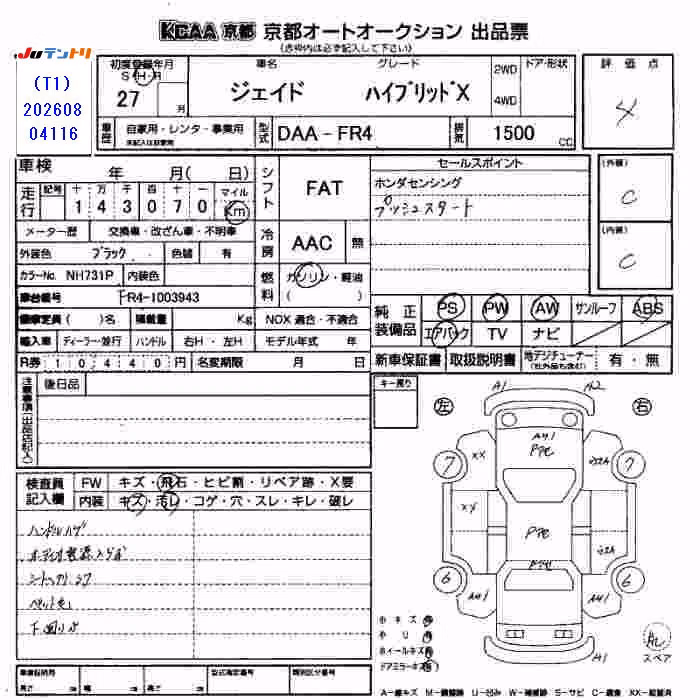 KCAA 京都 京都オートオークション 出品票
(赤枠内は必ず記入して下さい)
JUテントリ
(T1)
202608
04116
初度登録年月
S・H・R
27 月
車名
ジェイド
グレード
ハイブリッドX
2WD
4WD
ドア・形状
評価点
4
車歴
自家用・レンタ・事業用
未記入は自家用
型式
DAA-FR4
排気
1500 CC
車検 年 月( 日)
走行
記号 十 万 千 百 十 一 マイル
1 4 3 0 7 0 Km
メーター歴 交換車・改ざん車・不明車
外装色 ブラック 色替 有
カラーNo. NH731P 内装色
車台番号 FR4-1003943
乗車定員( )名 積載量 Kg
NOX 適合・不適合
輸入車 ディーラー・並行 ハンドル 右H・左H
モデル年式 年
R券 10440円 名変期限 月 日
シフト
FAT
冷房
AAC 無
燃料
ガソリン・軽油
( )
セールスポイント
ホンダセンシング
プッシュスタート
(外装)
C
(内装)
C
純正装備品
PS PW AW サンルーフ ABS
エアバック TV ナビ
新車保証書 取扱説明書 地デジチューナー 有・無
注意事項(出品店記入)
後日品
キー預り
検査員記入欄
FW キズ・飛石・ヒビ割・リペア跡・X要
内装 キズ・汚レ・コゲ・穴・スレ・キレ・破レ
ハンドルハゲ
左
右
A1
A2
A41
7
7
XX
XX
6
6
A41
A41
A41
ホイールキズ
ドアミラーキズ
スペア
車検証記入用
長さ cm
幅 cm
高さ cm
型式指定番号
類別区分番号